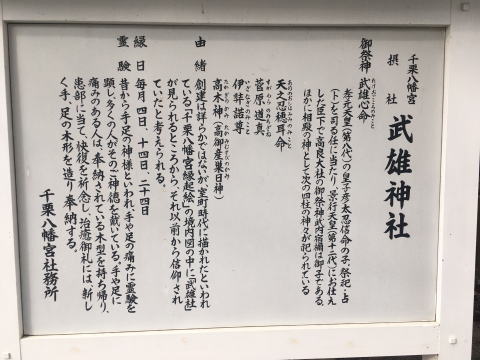 千栗八幡宮
摂社 武雄神社
御祭神 武雄心命
たけおごころのみこと
孝元天皇(第八代)の皇子彦太忍信命の子、祭祀・占
(卜)を司る任に当たり、景行天皇(第十二代)にお仕え
した臣下で高良大社の御祭神武内宿禰は御子である。
ほかに相殿の神として次の四柱の神々が祀られている
天之忍穂耳命
あめのおしほみみのみこと
菅原道真
すがわらのみちざね
伊弉諾尊
いざなぎのみこと
高木神(高御産巣日神)
たかぎのかみ たかみむすびのかみ
由緒 創建は詳らかではないが、室町時代に描かれたといわれ
ている「千栗八幡宮縁起絵」の境内図の中に「武雄社」
が見られるところから、それ以前から信仰され
ていたと考えられる。
縁日 毎月、四日、十四日、二十四日
霊験 昔から手足の神様といわれ、手や足の痛みに霊験を
顕し、多くの人がそのご神徳を戴いている。手や足に
痛みのある人は、奉納されている木型を持ち帰り、
患部に当て、快復を祈念し、治癒御礼には、新し
く手、足の木形を造り奉納する。
千栗八幡宮社務所